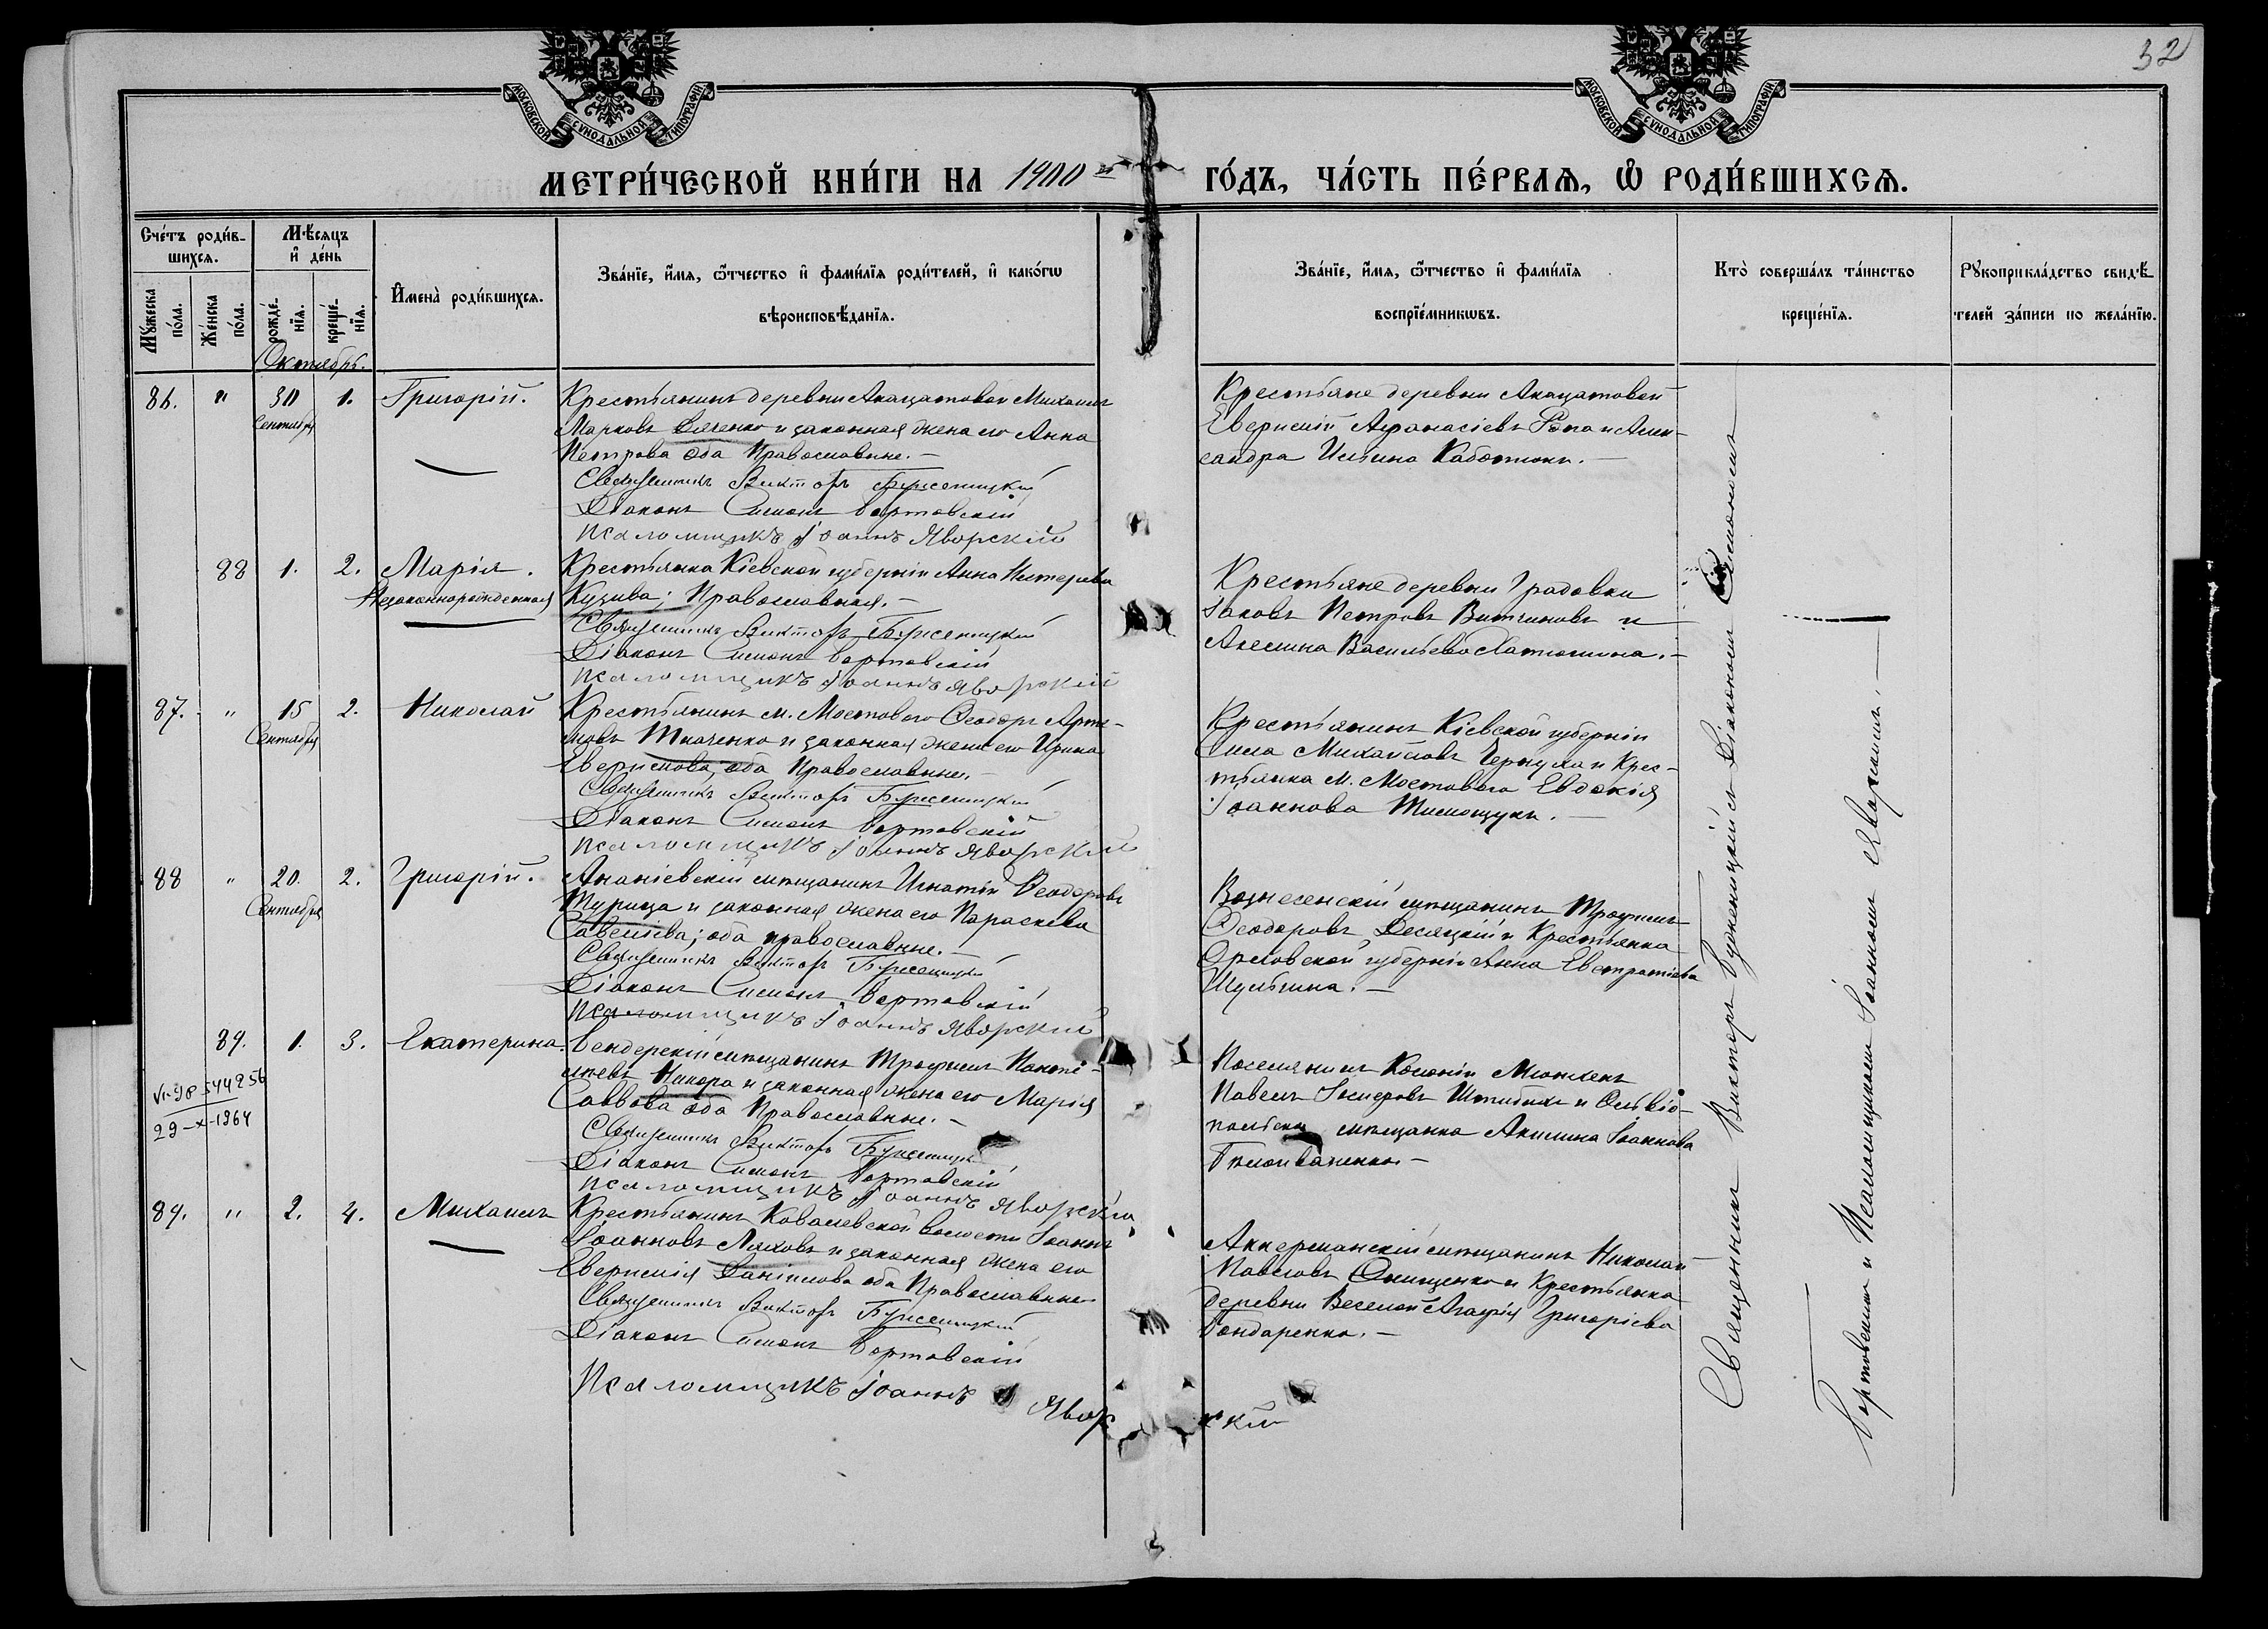 32
МОСКОВСКОЙ СѴНОДАЛЬНОЙ ТИПОГРАФІИ
МОСКОВСКОЙ СѴНОДАЛЬНОЙ ТИПОГРАФІИ
МЕТРИ́ЧЕСКОЙ КНИ́ГИ НА 1900 й ГО́ДЪ, ЧА́СТЬ ПЕ́РВАѦ, Ѡ РОДИ́ВШИХСѦ.
Сче́тъ роди́в-
шихсѧ.
Мꙋ́жеска по́ла.
Же́нска по́ла.
Мѣ́сѧцъ
и҆ де́нь
рожде́-
нїѧ.
креще́-
нїѧ.
Имена̀ роди́вшихсѧ.
Зва́нїе, и҆́мѧ, ѻ҆́тчество и҆ фами́лїѧ роди́телей, и҆ како́гѡ
вѣроисповѣ́данїѧ.
Зва́нїе, и҆́мѧ, ѻ҆́тчество и҆ фами́лїѧ
воспрїе́мникѡвъ.
Кто̀ соверша́лъ та́инство
креще́нїѧ.
Рꙋкоприкла́дство свидѣ́-
телей за́писи по жела́нїю.
Октябрь.
86. " 30 Сентября 1. Григорій.
Крестьянинъ деревни Акацатовой Михаилъ
Марковъ Дяченко и законная жена его Анна
Петрова оба Православные. –
Священникъ Викторъ Буженицкій
Діаконъ Симонъ Бортовскій
Псаломщикъ Іоаннъ Яворскій
Крестьяне деревни Акацатовой
Евфимій Афанасіевъ и Алек-
сандра
88 1. 2. Марія.
Незаконнорожденная
Крестьянка Кіевской губерніи Анна Нестерова
Кузива; Православная. –
Священникъ Викторъ Буженицкій
Діаконъ Симонъ Бортовскій
Псаломщикъ Іоаннъ Яворскій
Крестьяне деревни Градовки
Іаковъ Петровъ и
Васильева –
87. " 15 Сентября 2. Николай
Крестьянинъ м. Мостового Ѳеодоръ Арте-
мовъ Ткаченко и законная жена его Ирина
Евфимова, оба Православные. –
Священникъ Викторъ Буженицкій
Діаконъ Симонъ Бортовскій
Псаломщикъ Іоаннъ Яворскій
Крестьянинъ Кіевской губерніи
Сила Михайловъ и Крес-
тьянка м. Мостового Евдокія
Іоаннова Тимощукъ. –
88 " 20. Сентября 2. Григорій.
Ананіевскій мѣщанинъ Игнатій Ѳеодоровъ
Турица и законная жена его Параскева
Савеліева; оба православные. –
Священникъ Викторъ Буженицкій
Діаконъ Симонъ Бортовскій
Псаломщикъ Іоаннъ Яворскій
Вознесенскій мѣщанинъ Трофимъ
Ѳеодоровъ Десяцкій и Крестьянка
Орловской губерніи Анна Евстратіева
Шульгина. –
89. 1. 3. Екатерина.
29-X-1964
Бендерскій мѣщанинъ Трофимъ
Никора и законная жена его Марія
Саввова оба Православные. –
Священникъ Викторъ Буженицкій
Діаконъ Симонъ Бортовскій
Псаломщикъ Іоаннъ Яворскій
Поселянинъ Колоніи Мюнхенъ
Павелъ и Ольвіо-
польская мѣщанка Акилина Іоаннова
89. " 2. 4. Михаилъ
Крестьянинъ Ковалевской волости Іоаннъ
Іоанновъ Ляховъ и законная жена его
Евфимія Даніилова оба Православные
Священникъ Викторъ Буженицкій
Діаконъ Симонъ Бортовскій
Псаломщикъ Іоаннъ Яворскій
Аккерманскій мѣщанинъ Николай
Павловъ Онищенко и Крестьянка
деревни Веселой Агафія Григоріева
Бондаренко. –
Священникъ Викторъ Буженицкій съ Діакономъ Симономъ
Бортовскимъ и Псаломщикомъ Іоанномъ Яворскимъ. –